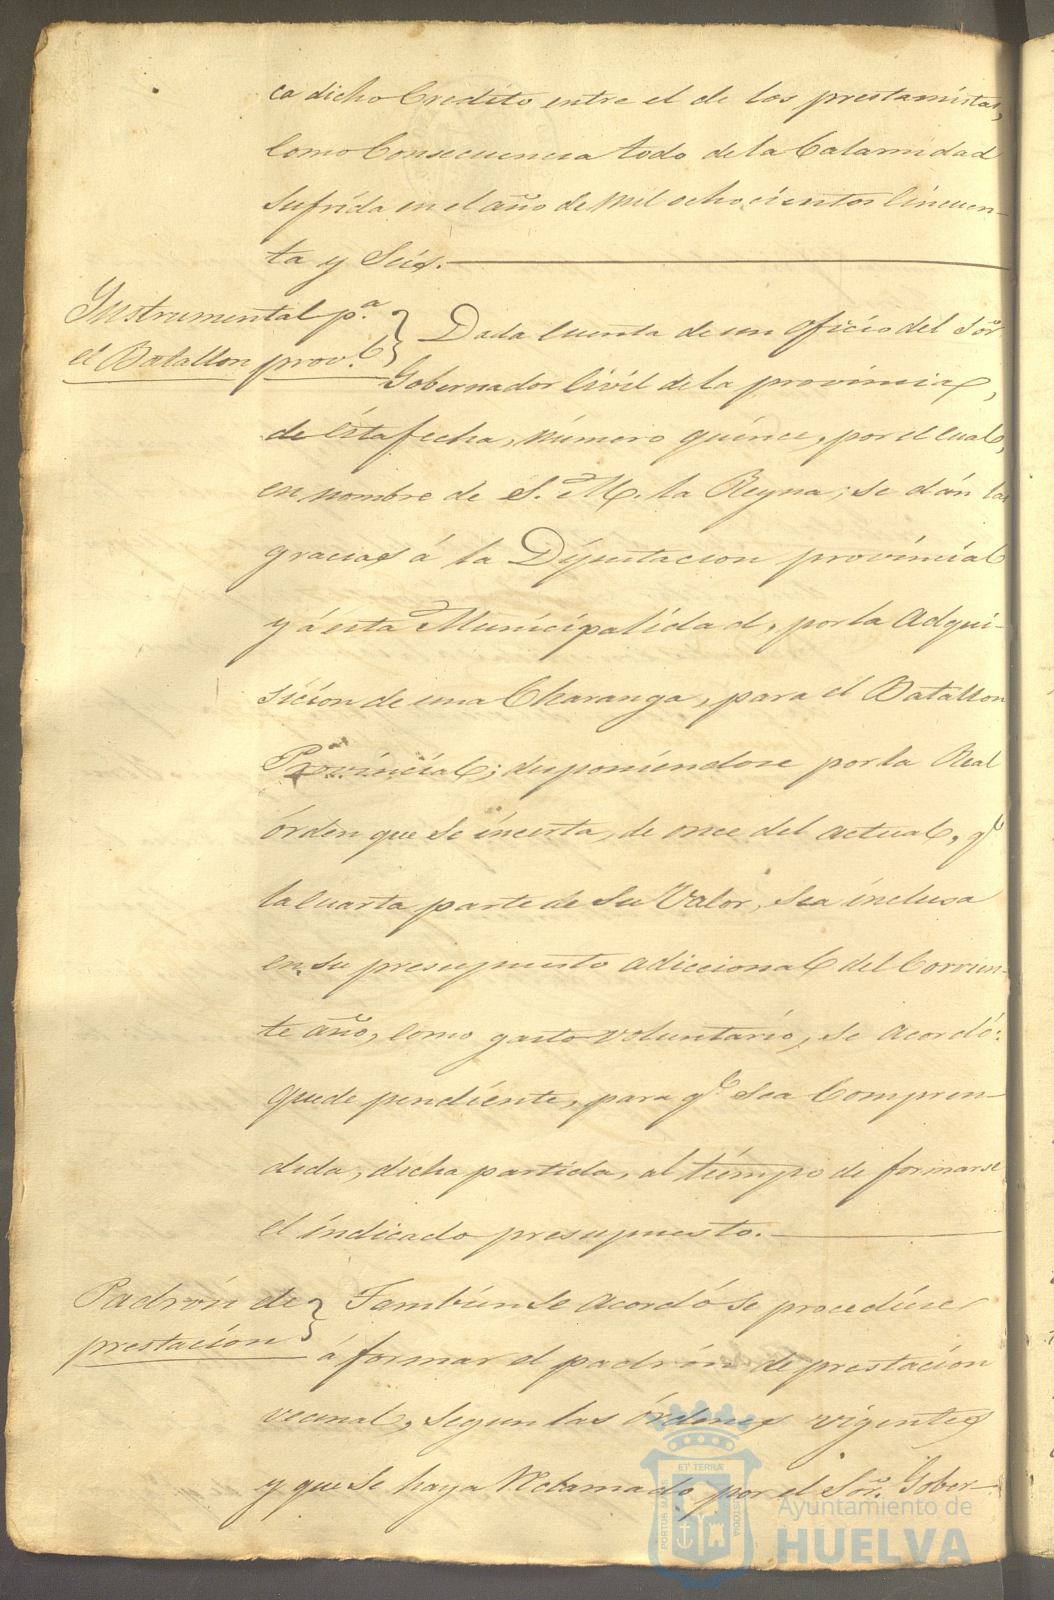 ca dicho Credito entre el de los prestamistas,
como Consecuencia todo de la Calamidad
sufrida en el año de mil ochocientos cincuen-
ta y Seis.
Instrumental p.ª
el Batallon prov.l
Dada cuenta de un oficio del Sor.
Gobernador Civil de la provincia,
de ésta fecha, número quince, por el cual,
en nombre de S. M. la Reyna; se dán las
gracias á la Diputacion provincial
y á esta Municipalidad, por la Adqui-
sicion de una Charanga, para el Batallon
Provincial; disponiendose por la Real
órden que se incerta, de once del actual, q.e
la cuarta parte de su Valor, sea inclusa
en su presupuesto adiccional del Corrien-
te año, como gasto voluntario, se acordó:
quede pendiente, para q.e sea Compren-
dida, dicha partida, al tiempo de formarse
el indicado presupuesto.
Padrón de
prestacion
Tambien se acordó se procediese
á formar el padrón de prestacion
vecinal, segun las órdenes vigentes
y que se haya Reclamado por el Sor. Gober-
PORTUS MARIS
ET TERRÆ
CUSTODIA
Ayuntamiento de
HUELVA